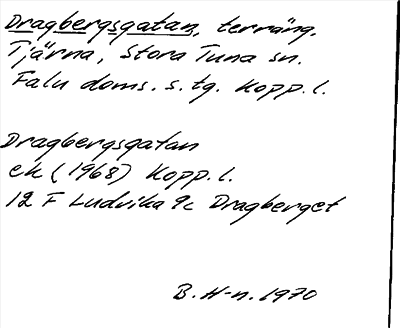 Dragbergsgatan, terräng.
Tjärna, Stora Tuna sn.
Falu doms. s. tg. Kopp. l.
Dragbergsgatan
ek (1968) Kopp. l.
12 F Ludvika 9c Dragberget
B. H-n. 1970